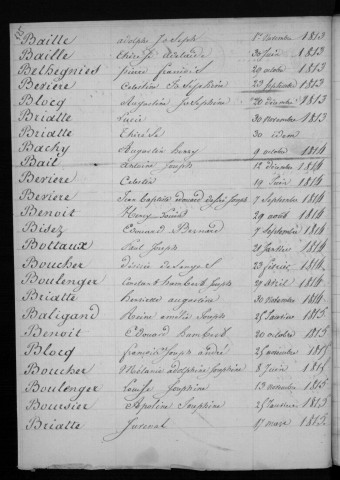 Baille adolphe Joseph 1er Novembre 1813
Baille thérèse Adelaide 30 Juin 1813
Bethegnies pierre francois 29 octobre 1813
Beviere Celestin Josephine 23 Septembre 1813
Blocq Augustine Josephine 20 décembre 1813
Briatte Lucie 30 Novembre 1813
Briatte Thérèse 30 idem
Bachy Augustin henry 9 octobre 1814
Bail Antoine Joseph 12 Décembre 1814
Beviere Celestin 19 Juin 1814
Beviere Jean Baptiste édouard désiré Joseph 7 Septembre 1814
Benoit Henry 29 août 1814
Bisez Edouard Bernard 7 Septembre 1814
Bottaux Paul Joseph 21 Janvier 1814
Boucher 23 février 1814
Boulenger Constant humbert Joseph 29 Avril 1814
Briatte henriette augustine 30 Novembre 1814
Baligand Reine amelie Joseph 25 Janvier 1815
Benoit Edouard humbert 20 octobre 1815
Blocq françois Joseph andré 25 novembre 1815
Boucher Melanie adolphine Josephine 8 Juin 1815
Boulenger Louise Josephine 13 novembre 1815
Boursier Apoline Josephine 25 Janvier 1815
Briatte Juvenal 17 mars 1815